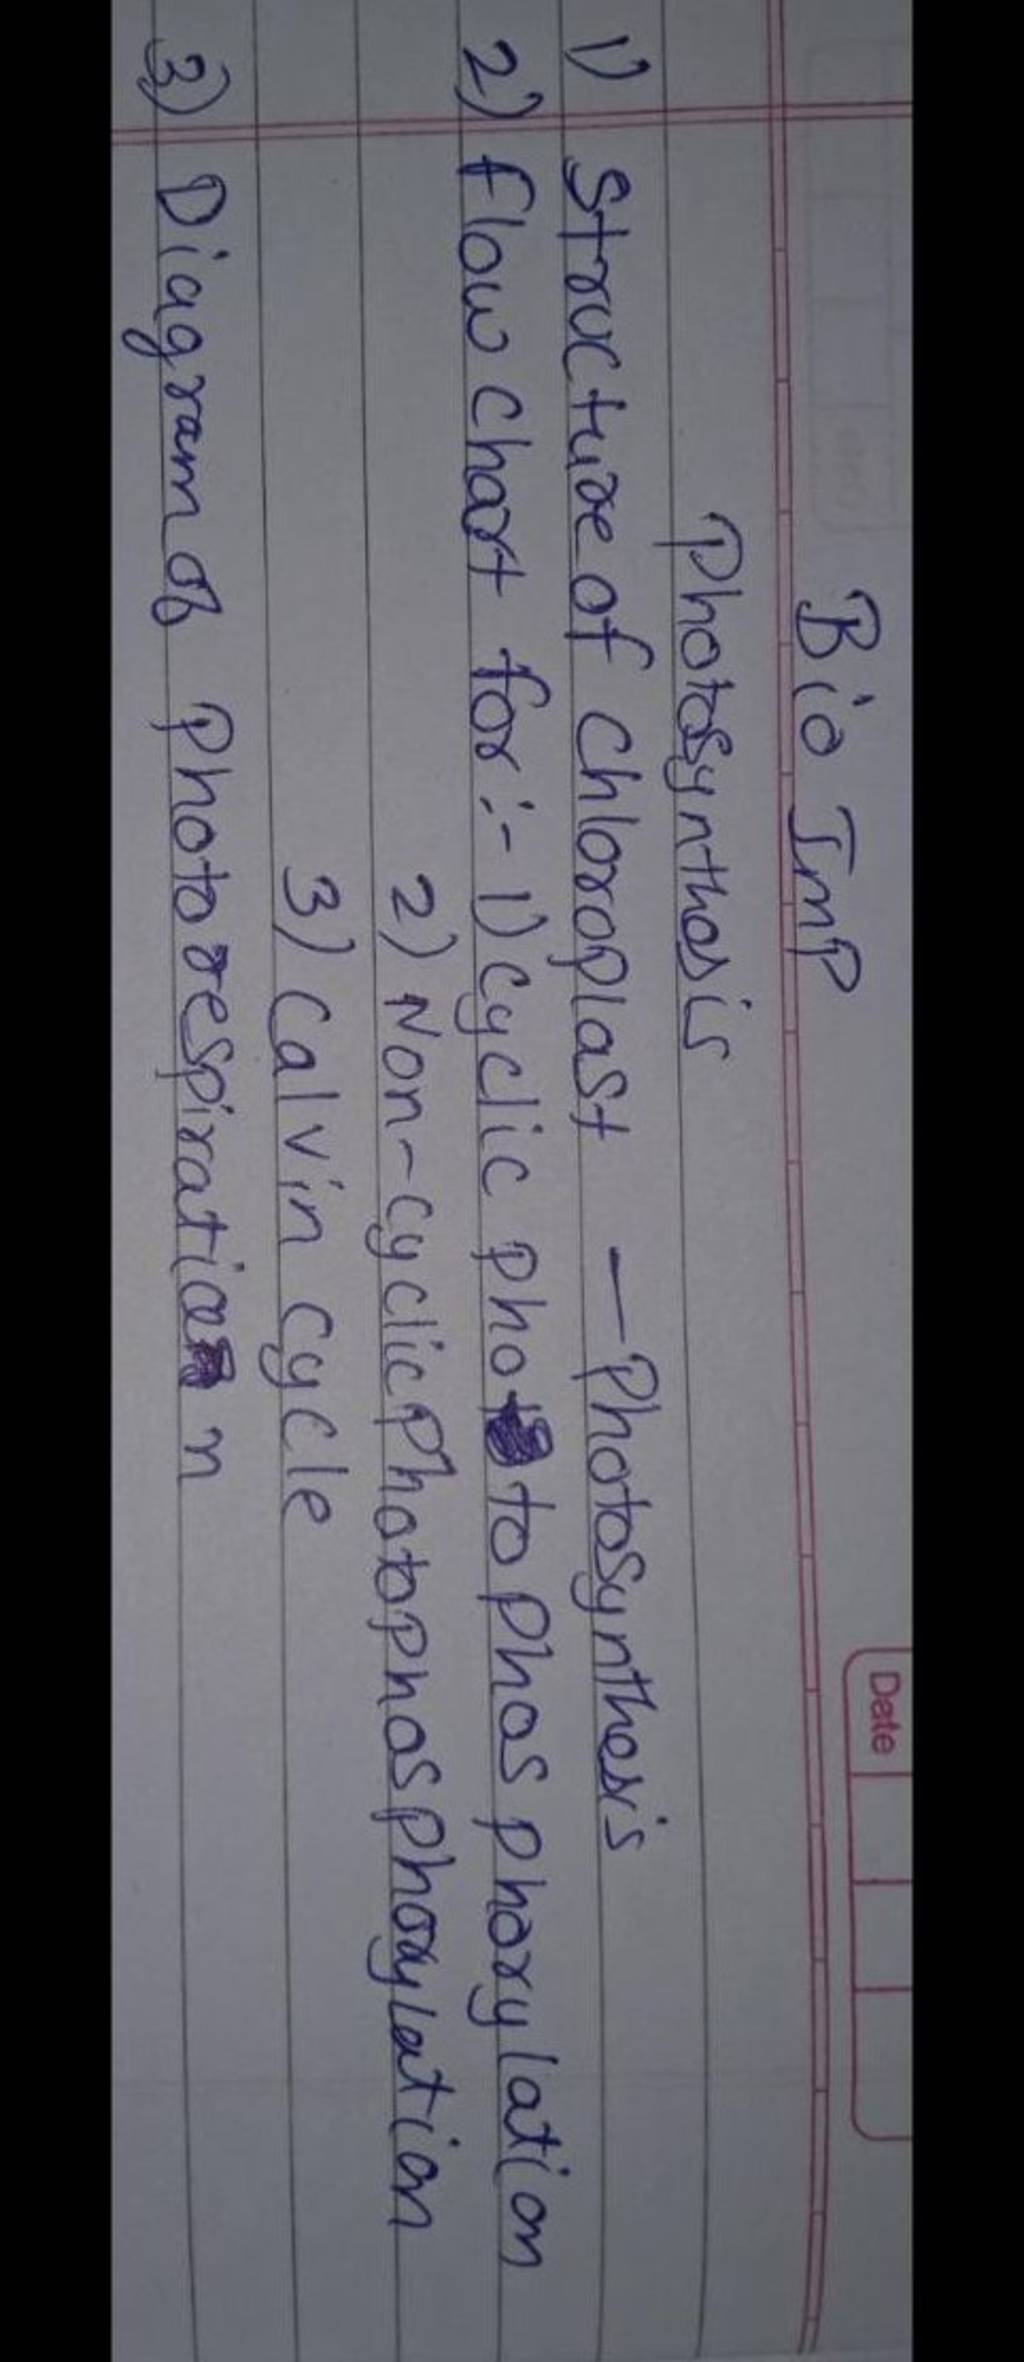 Date
Bio Imp
Photosynthesis
1) Structure of Chloroplast - Photosynthesis
2) flow chart for :- 1) Cyclic photophosphorylation
2) Non-cyclic Photophosphorylation
3) Calvin cycle
3) Diagram of Photorespiration